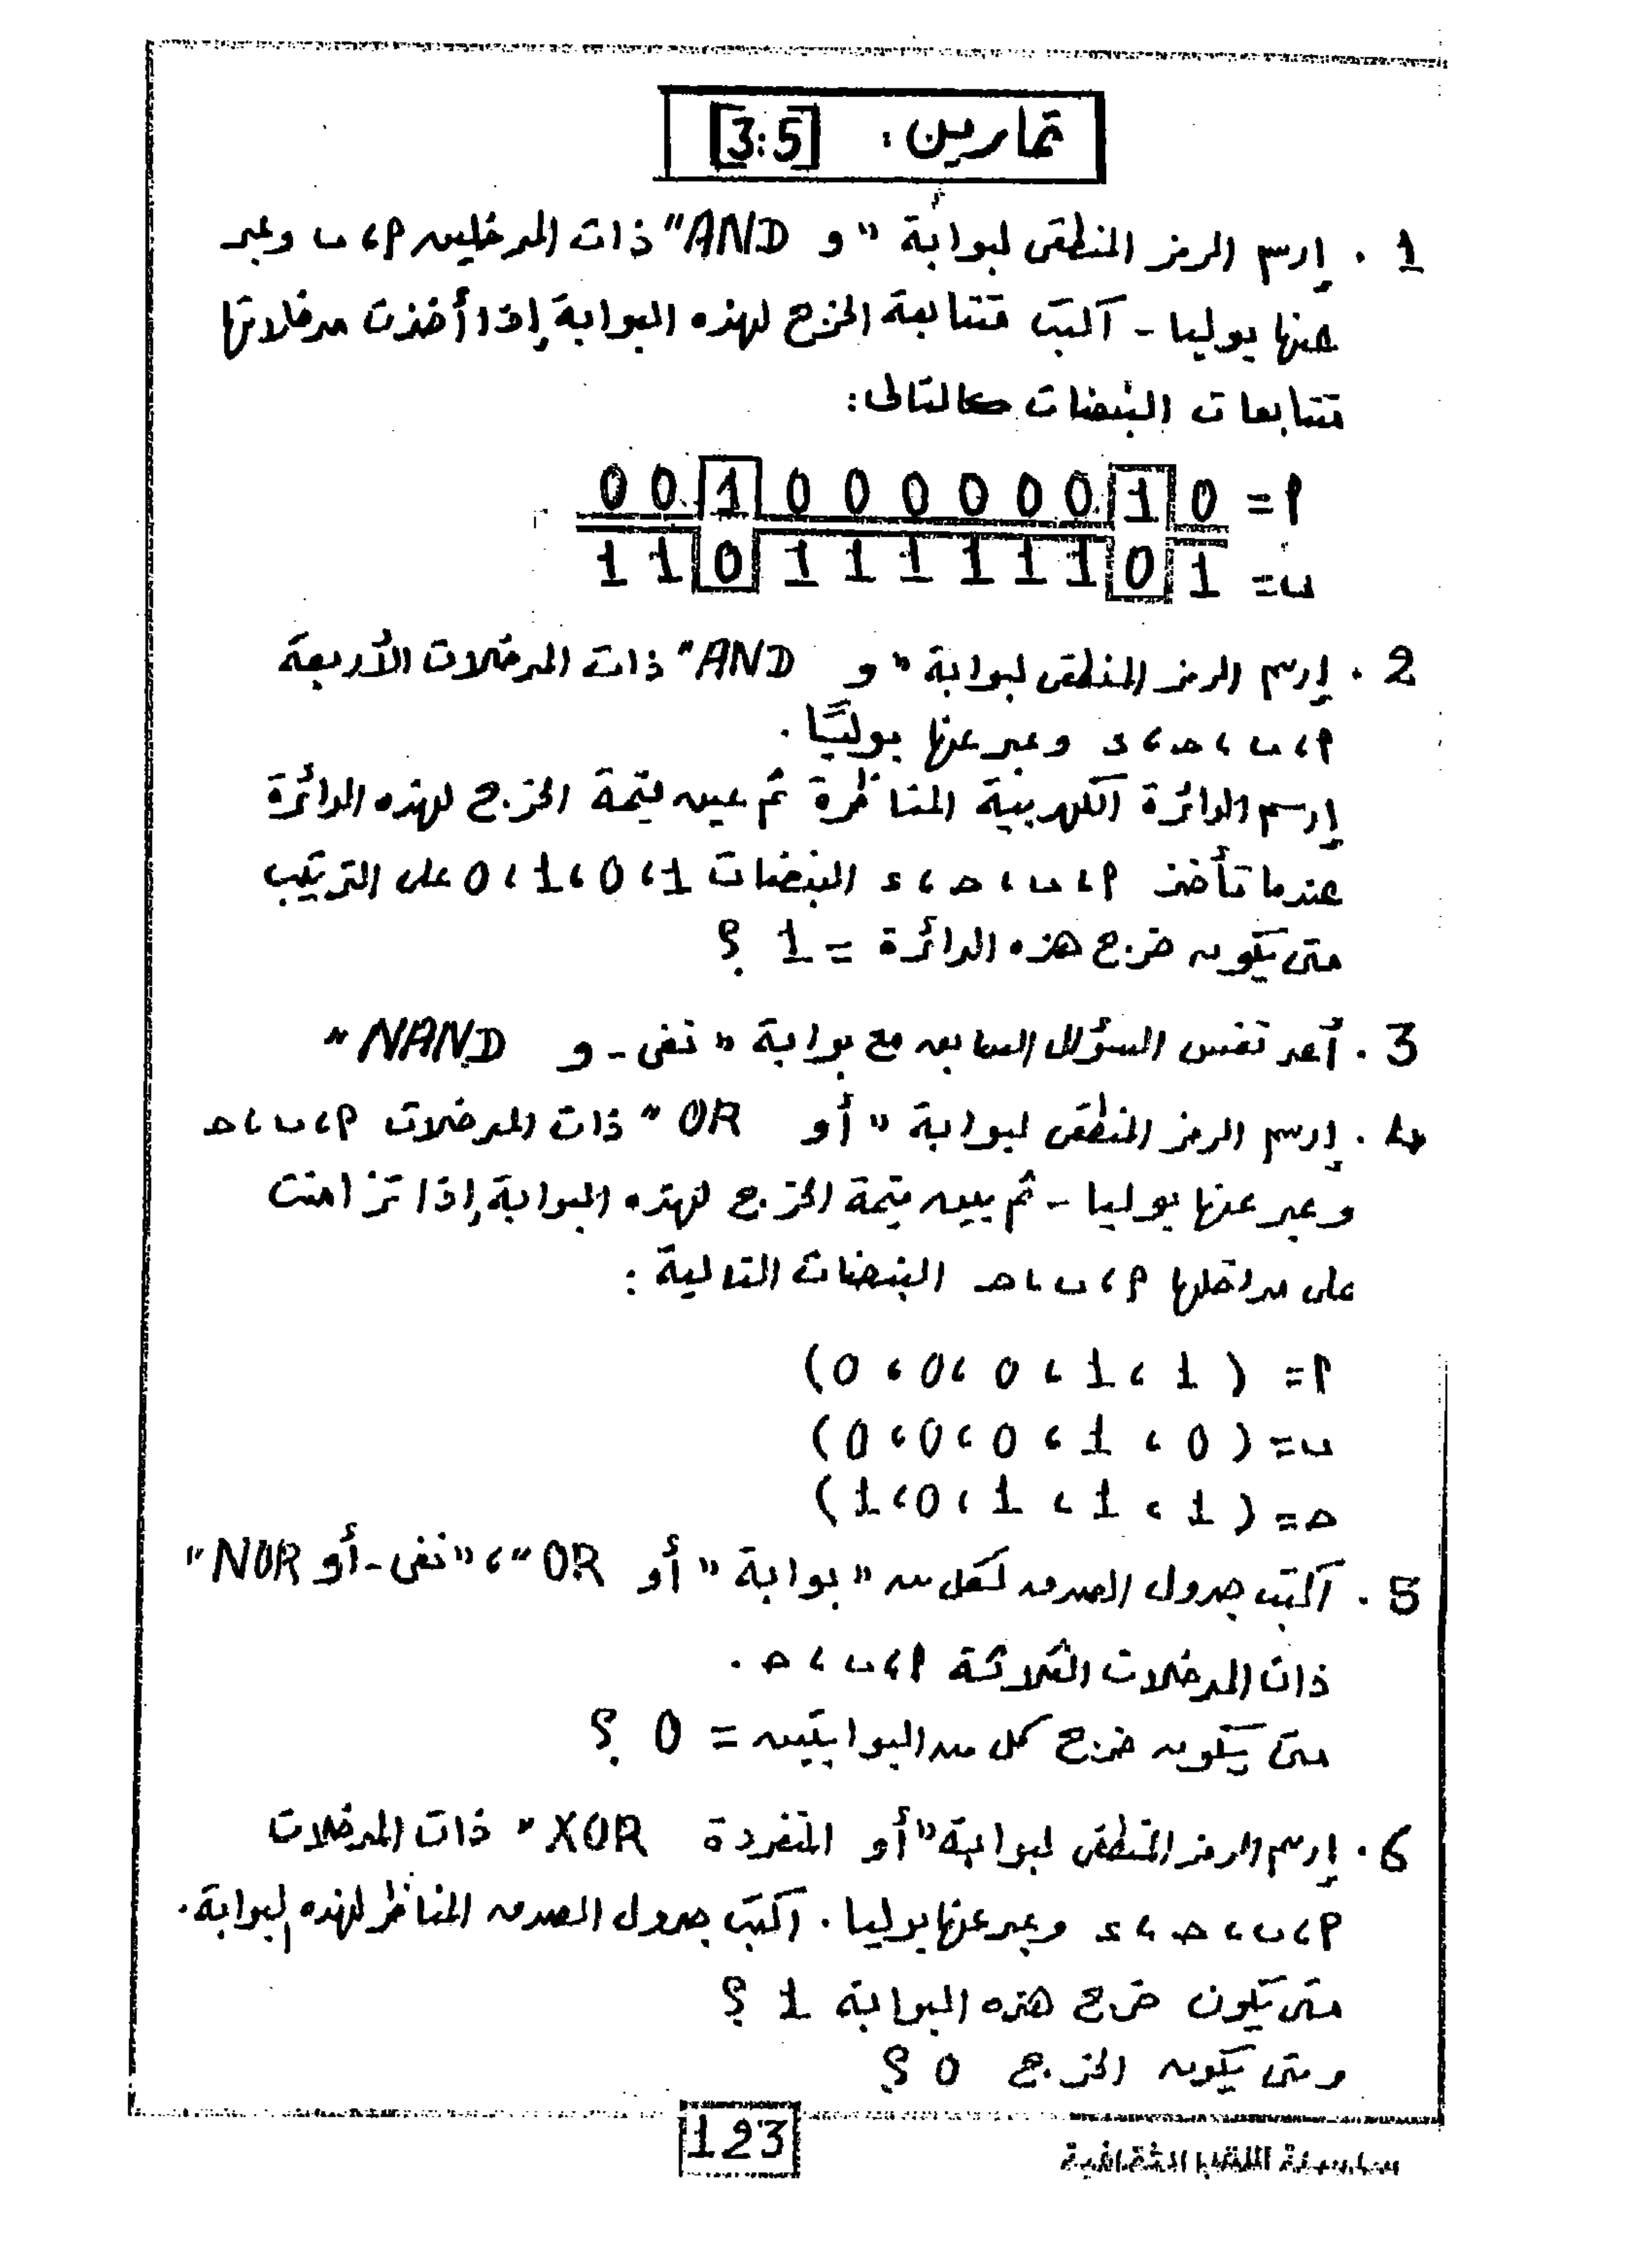 تمارين : [3:5]
1 . إرسم الرمز المنطقى لبوابة " و AND " ذات المدخلين م ، ں وعبر
عنها بوليا - أكتب متتابعة الخرج لهذه البوابة إذا أخذت مدخلاتها
متتابعات النبضات كالتالى :
م = 0 1 0 0 0 0 0 0 1 0 0
ں = 1 0 1 1 1 1 1 1 0 1 1
2 . إرسم الرمز المنطقى لبوابة " و AND " ذات المدخلات الأربعة
م ، ں ، ح ، ء وعبر عنها بوليًا .
إرسم الدائرة الكهربية المناظرة ثم عين قيمة الخرج لهذه الدائرة
عندما تأخذ م ، ں ، ح ، ء النبضات 1 ، 0 ، 1 ، 0 على الترتيب
متى يكون خرج هذه الدائرة = 1 ؟
3 . أعد نفس السؤال السابق مع بوابة " نفى - و NAND "
4 . إرسم الرمز المنطقى لبوابة " أو OR " ذات المدخلات م ، ں ، ح
وعبر عنها بوليا - ثم بين قيمة الخرج لهذه البوابة إذا تزامنت
على مداخلها م ، ں ، ح النبضات التالية :
م = ( 1 ، 1 ، 0 ، 0 ، 0 )
ں = ( 0 ، 1 ، 0 ، 0 ، 0 )
ح = ( 1 ، 1 ، 1 ، 0 ، 1 )
5 . أكتب جدول الصدق لكل من " بوابة " أو OR " ، " نفى - أو NOR "
ذات المدخلات الثلاثة م ، ں ، ح .
متى يكون خرج كل من البوابتين = 0 ؟
6 . إرسم الرمز المنطقى لبوابة " أو المنفردة XOR " ذات المدخلات
م ، ں ، ح ، ء وعبر عنها بوليا . أكتب جدول الصدق المناظر لهذه البوابة .
متى يكون خرج هذه البوابة 1 ؟
ومتى يكون الخرج 0 ؟
123